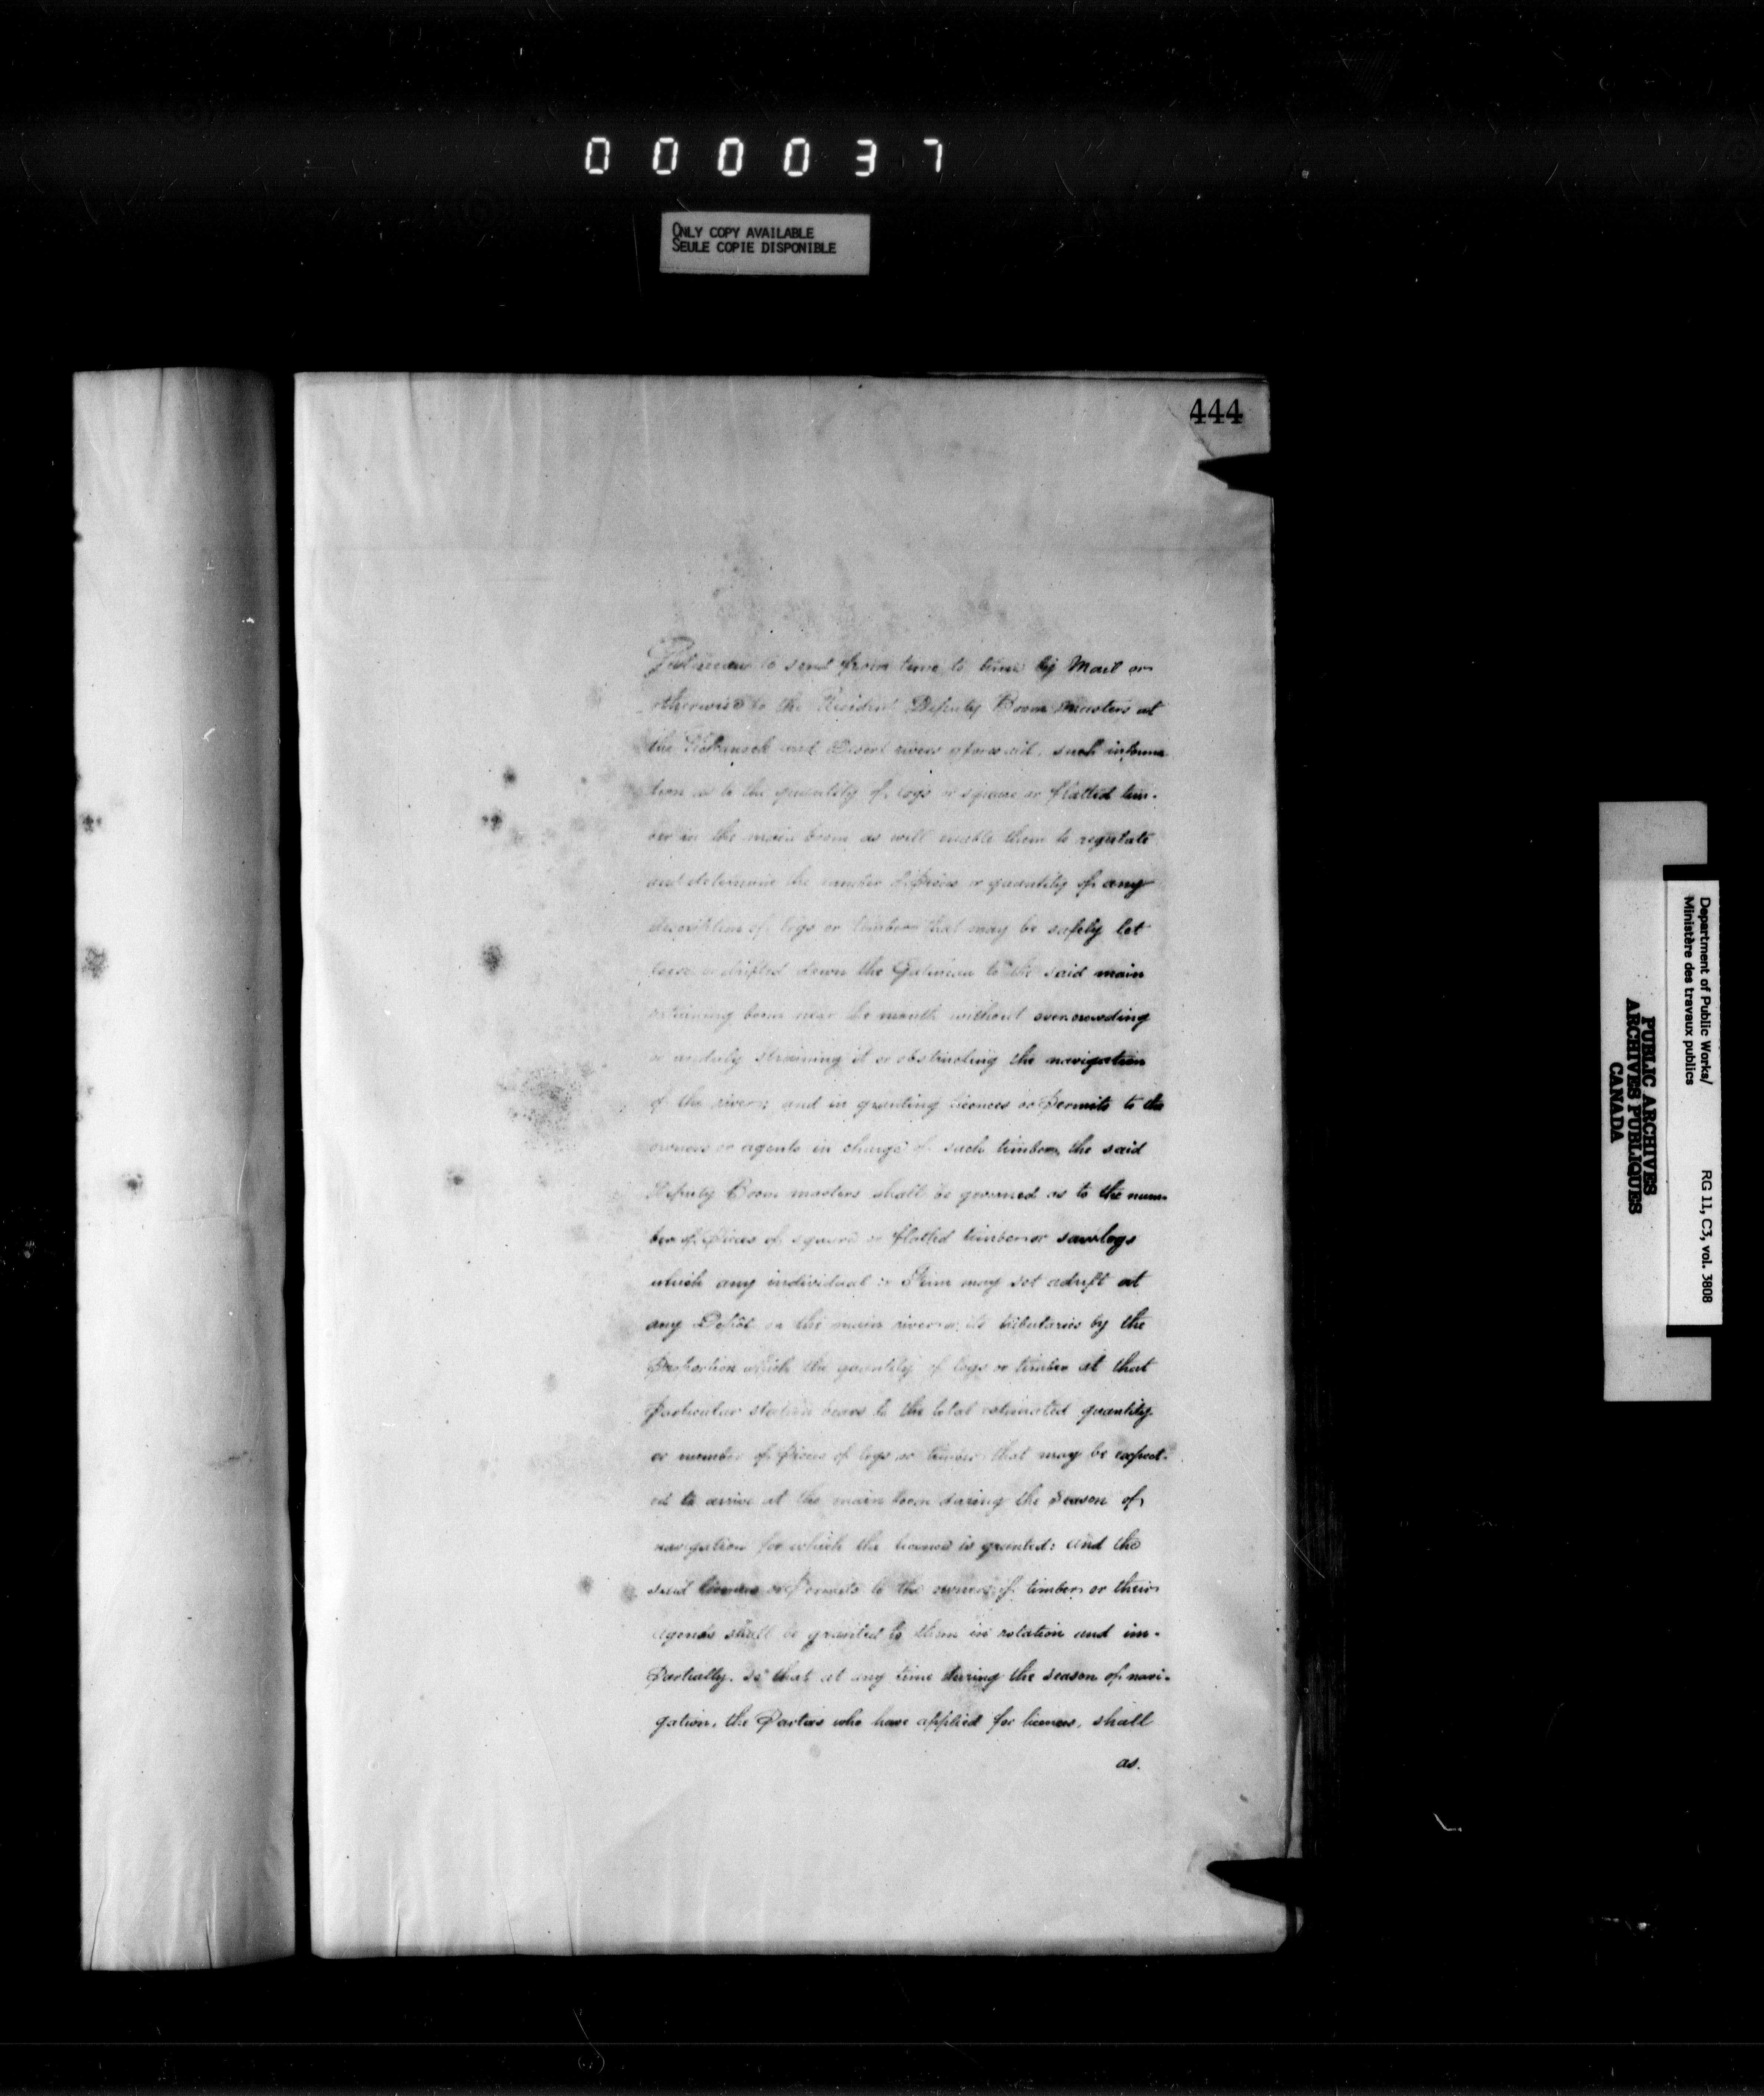 0 0 0 0 3 7
ONLY COPY AVAILABLE
SEULE COPIE DISPONIBLE
444
Gatineau to send from time to time by Mail or
otherwise to the Resident Deputy Boom Masters at
the and Desert rivers aforesaid, such informa
tion as to the quantity of logs or square or flatted tim-
ber in the main boom as will enable them to regulate
and determine the number of pieces or quantity of any
description of logs or timber that may be safely let
loose or drifted down the Gatineau to the said main
retaining boom near the mouth without overcrowding
or unduly straining it or obstructing the navigation
of the river; and in granting licences or permits to the
owners or agents in charge of such timber, the said
Deputy Boom masters shall be governed as to the num-
ber of pieces of square or flatted timber or sawlogs
which any individual or Firm may set adrift at
any Depôt on the main river or its tributaries by the
Proportion which the quantity of logs or timber at that
Particular station bears to the total estimated quantity
or number of pieces of logs or timber that may be expect-
ed to arrive at the main boom during the Season of
navigation for which the licence is granted: and the
said licences or Permits to the owners of timber or their
agents shall be granted to them in rotation and im-
Partially. so that at any time during the season of navi-
gation, the Parties who have applied for licences, shall
as.
Department of Public Works/
Ministère des travaux publics
RG 11, C3, vol. 3808
PUBLIC ARCHIVES
ARCHIVES PUBLIQUES
CANADA